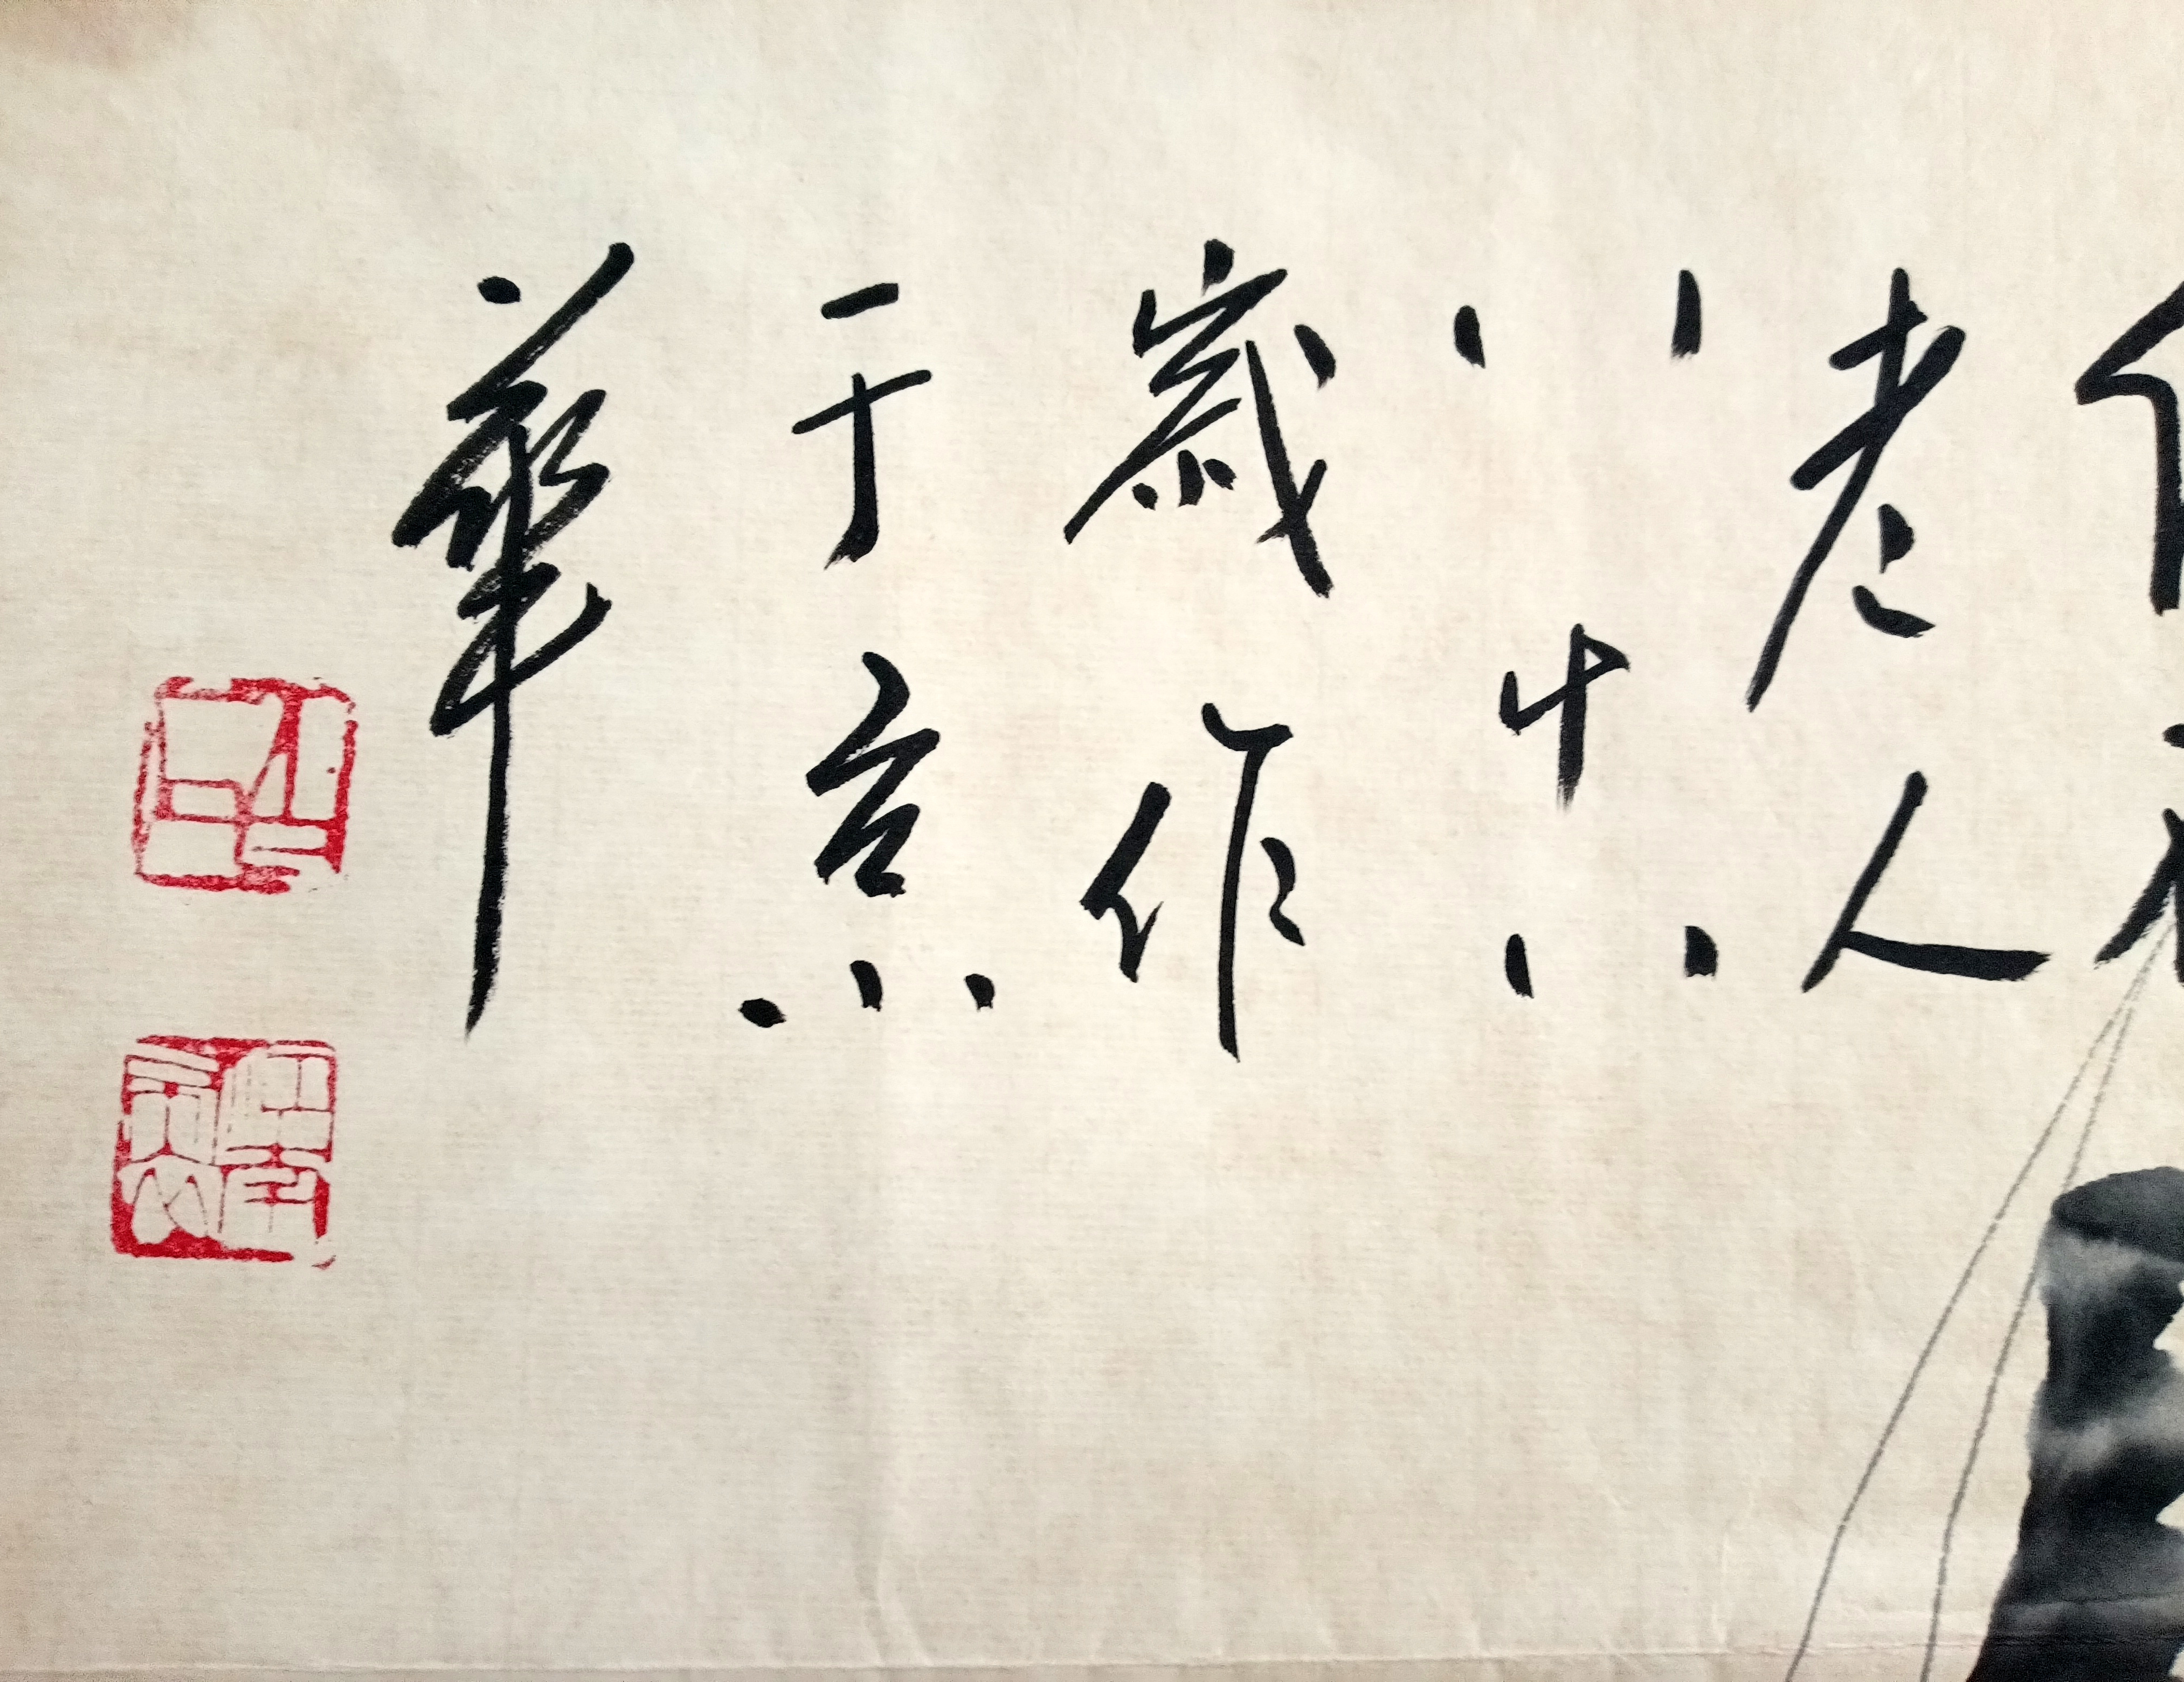 老人
八十八
歲作
于京
華